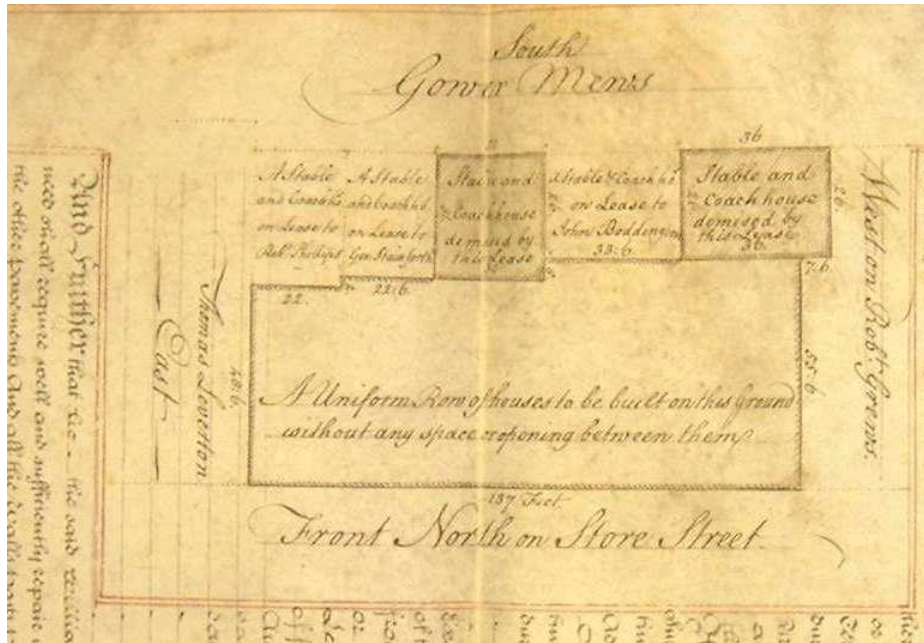 South
Gower Mews
36
A Stable
and Coach ho
on Lease to
Robt. Phillips
A Stable
and Coach ho
on Lease to
Geo. Stainforth
Stable and
Coachhouse
demised by
this Lease
A Stable & Coach ho
on Lease to
John Boddington
33:6
Stable and
Coach house
demised by
this Lease
26
7:6
22
22:6
48:6
55:6
Thomas Leverton
East
West on Robt. Grews.
A Uniform Row of houses to be built on this Ground
without any space or opening between them
137 Feet
Front North on Store Street.
And further that he the said
need shall require well and sufficiently repair
the other pavements And all the